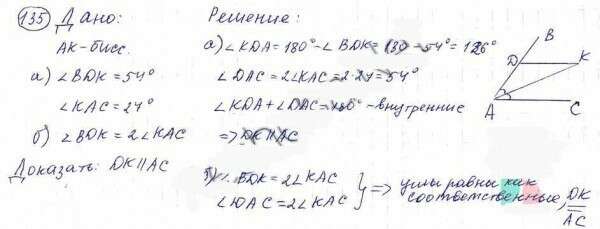 135 Дано:
АК-бисс.
а) ∠BDK = 54°
∠KAC = 27°
б) ∠BDK = 2∠KAC
Доказать: DK||AC
Решение:
а) ∠KDA = 180° - ∠BDK = 180 - 54° = 126°
∠DAC = 2∠KAC = 2·27 = 54°
∠KDA + ∠DAC = 180° - внутренние
=> DK||AC
б) ∠BDK = 2∠KAC
∠DAC = 2∠KAC
=> углы равны как
соответственные, DK
AC
B
D
K
A
C